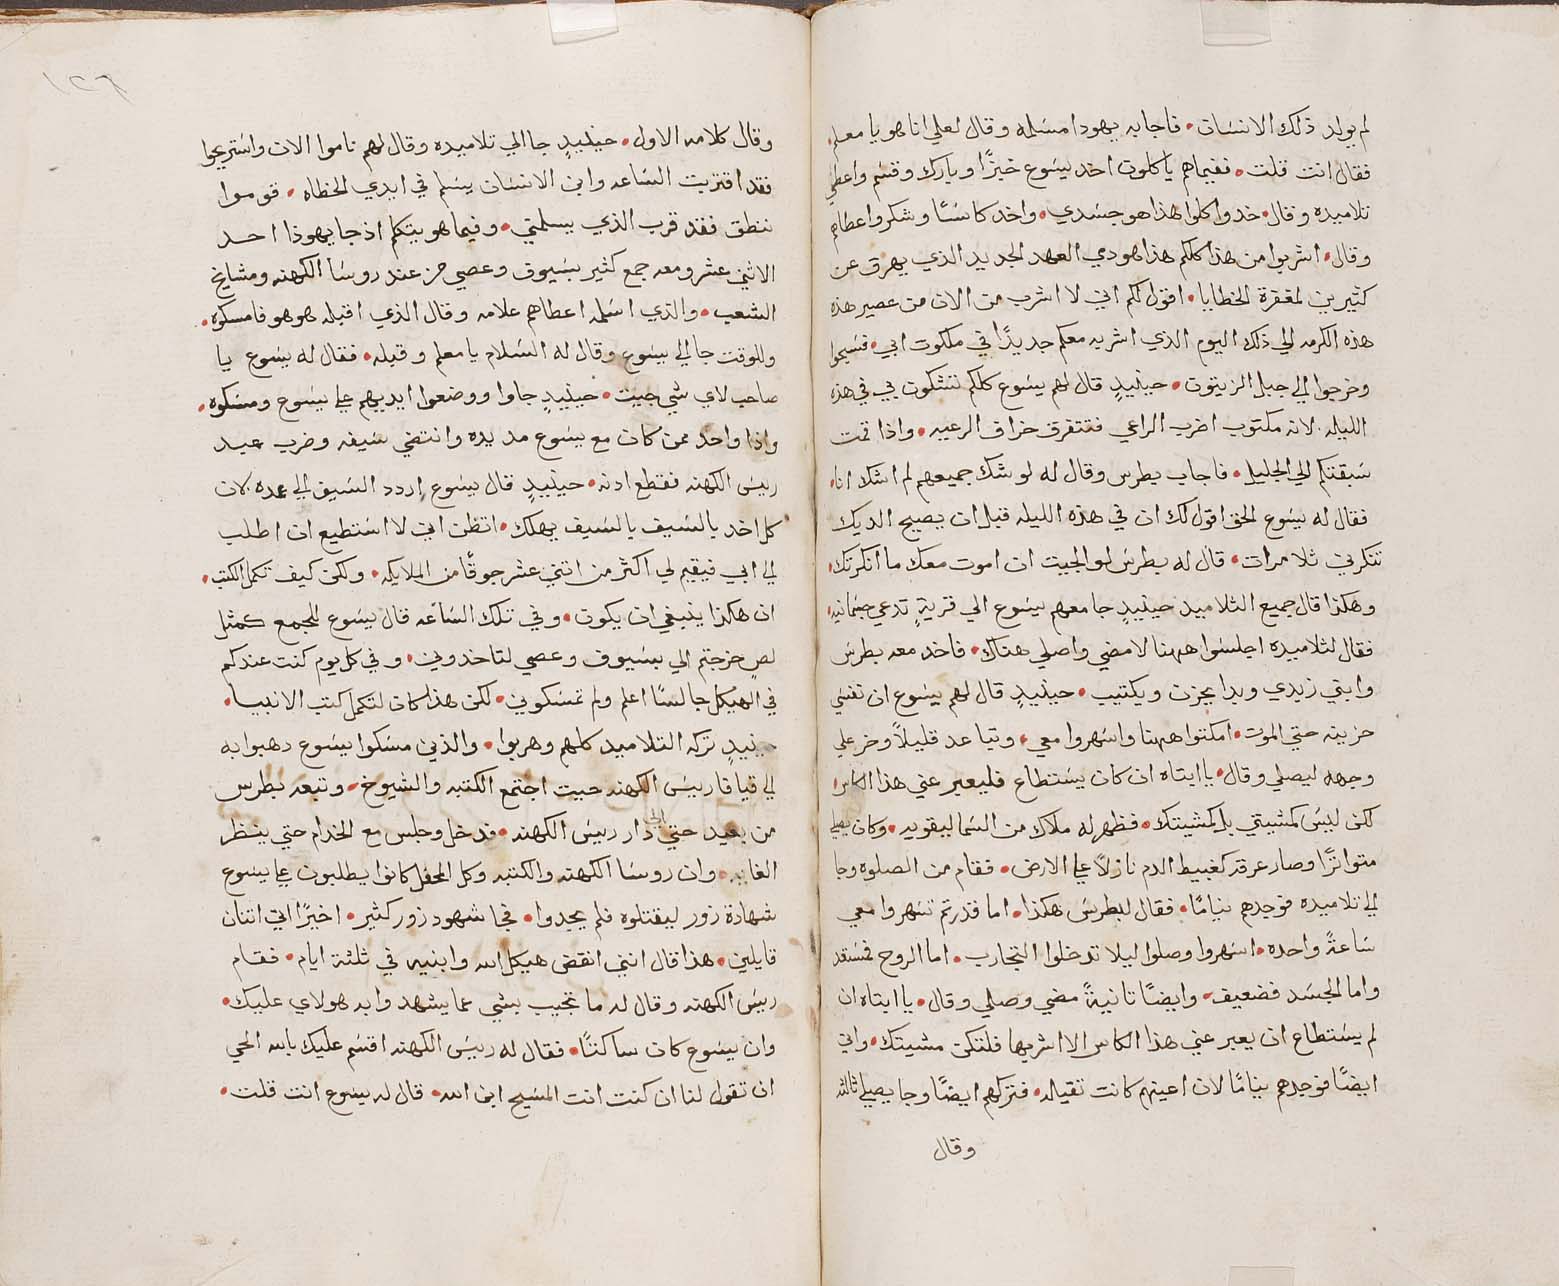 لم يولد ذلك الانسان • فاجابه يهودا مسلمه وقال لعلي انا هو يا معلم •
فقال انت قلت • ففيماهم ياكلون اخد يسوع خبزًا وبارك وقسم واعطي
تلاميده وقال • خدوا كلوا هذا هو جسدي • واخد كاسًا وشكر واعطاهم
وقال • اشربوا من هذا كلكم هذا هو دمي العهد الجديد الذي يهرق عن
كثيرين لمغفرة الخطايا • اقول لكم اني لا اشرب من الان من عصير هذه
هذه الكرمه الي ذلك اليوم الذي اشربه معكم جديدًا في ملكوت ابي • فسبحوا
وخرجوا الي جبل الزيتون • حينيدٍ قال لهم يسوع كلكم تشكون بي في هذه
الليله • لانه مكتوب اضرب الراعي فتتفرق خراف الرعيه • واذا قمت
سبقتكم الي الجليل • فاجاب بطرس وقال له لو شك جميعهم لم اشك انا •
فقال له يسوع الحق اقول لك ان في هذه الليله قبل ان يصيح الديك
تنكرني ثلا مرات • قال له بطرس لو الجيت ان اموت معك ما انكرتك •
وهكذا قال جميع التلاميد حينيدٍ جا معهم يسوع الي قريةٍ تدعي جسمانيه •
فقال لتلاميده اجلسوا ههنا لامضي واصلي هناك • فاخد معه بطرس
وابني زبدي وبدا يحزن ويكتيب • حينيدٍ قال لهم يسوع ان نفسي
حزينه حتي الموت • امكتوا ههنا واسهروا معي • وتباعد قليلاً وخر علي
وجهه ليصلي وقال • يا ابتاه ان كان يستطاع فليعبر عني هذا الكاس •
لكن ليس كمشيتي بل كمشيتك • فظهر له ملاك من السما ليقويه • وكان يصلي
متواترًا وصار عرقه كغبيط الدم نازلاً علي الارض • فقام من الصلوه وجا
الي تلاميده فوجدهم نيامًا • فقال لبطرس هكذا • اما قدرتم تسهروا معي
ساعةً واحده • اسهروا وصلوا ليلا تدخلوا التجارب • اما الروح فمستعد
واما الجسد فضعيف • وايضًا تانيةً مضي وصلي وقال • يا ابتاه ان
لم يستطاع ان يعبر عني هذا الكاس الا اشربها فلتكن مشيتك • واتي
ايضًا فوجدهم نيامًا لان اعينهم كانت تقيله • فتركهم ايضًا وجا يصلي ثالثه
وقال
١٢٦
وقال كلامه الاول • حينيدٍ جا الي تلاميده وقال لهم ناموا الان واستريحوا
فقد اقتربت الساعه وابن الانسان يسلم في ايدي الخطاه • قوموا
ننطق فقد قرب الذي يسلمني • وفيما هو يتكلم اذ جا يهوذا احد
الاثني عشر ومعه جمع كثير بسيوف وعصي من عند روسا الكهنه ومشايخ
الشعب • والذي اسلمه اعطاهم علامه وقال الذي اقبله هو هو فامسكوه •
وللوقت جا الي يسوع وقال له السلام يا معلم وقبله • فقال له يسوع يا
صاحب لاي شي جيت • حينيدٍ جاوا ووضعوا ايديهم علي يسوع ومسكوه •
واذا واحد ممن كان مع يسوع مد يده وانتضي سيفه وضرب عبد
رييس الكهنه فقطع ادنه • حينيدٍ قال يسوع اردد السيف الي غمده • لان
كل اخد بالسيف بالسيف يهلك • اتظن اني لا استطيع ان اطلب
الي ابي فيقيم لي اكثر من اثني عشر جوقًا من الملايكه • ولكن كيف تكمل الكتب •
ان هكذا ينبغي ان يكون • وفي تلك الساعه قال يسوع للجمع كمثل
لصٍ خرجتم الي بسيوف وعصي لتاخدوني • وفي كل يوم كنت عندكم
في الهيكل جالسًا اعلم ولم تمسكوني • لكن هذا كان لتكمل كتب الانبيا •
حينيدٍ تركه التلاميد كلهم وهربوا • والذين مسكوا يسوع دهبوا به
الي قيافا رييس الكهنه حيت اجتمع الكتبه والشيوخ • وتبعه بطرس
من بعيد حتي الي دار رييس الكهنه • فدخل وجلس مع الخدام حتي ينظر
الغايه • وان روسا الكهنه والكتبه وكل المحفل كانوا يطلبون علي يسوع
شهادة زور ليقتلوه فلم يجدوا • فجا شهود زور كثير • اخيرًا اتي اتنان
قايلين • هذا قال انني انقض هيكل الله وابنيه في ثلثة ايام • فقام
رييس الكهنه وقال له ما تجيب بشي عما يشهد وا به هولاي عليك •
وان يسوع كان ساكتًا • فقال له رييس الكهنه اقسم عليك بالله الحي
ان تقول لنا ان كنت انت المسيح ابن الله • قال له يسوع انت قلت •